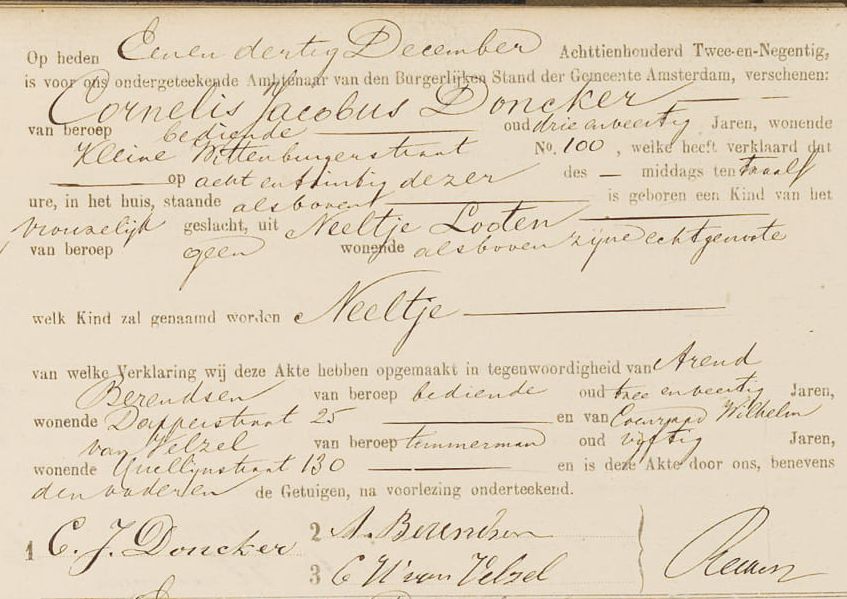 Op heden Eenen dertig December Achttienhonderd Twee-en-Negentig,
is voor ons ondergeteekende Ambtenaar van den Burgerlijken Stand der Gemeente Amsterdam, verschenen:
Cornelis Jacobus Doncker
van beroep bediende oud drie en veertig Jaren, wonende
Kleine Wittenburgerstraat No. 100, welke heeft verklaard dat
op acht en twintig dezer des — middags ten twaalf
ure, in het huis, staande alsboven is geboren een Kind van het
vrouwelijk geslacht, uit Neeltje Looten
van beroep geen wonende alsboven zijne echtgenoote
welk Kind zal genaamd worden Neeltje
van welke Verklaring wij deze Akte hebben opgemaakt in tegenwoordigheid van Arend
Berendsen van beroep bediende oud twee en veertig Jaren,
wonende Dapperstraat 25 en van Coenraad Wilhelm
van Velzel van beroep timmerman oud vijftig Jaren,
wonende Quellijnstraat 130 en is deze Akte door ons, benevens
den vader en de Getuigen, na voorlezing onderteekend.
1 C. J. Doncker
2 A. Berendsen
3 C W van Velzel